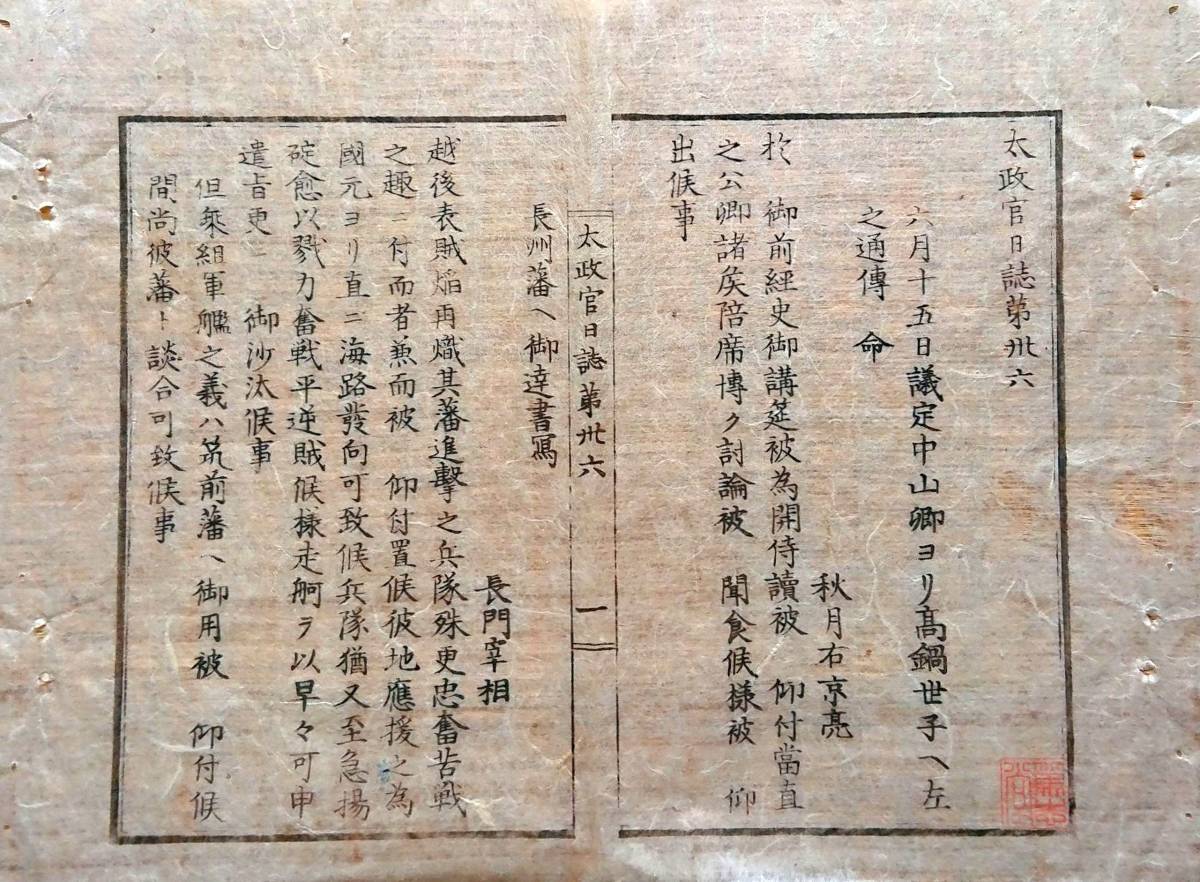 太政官日誌第卅六
六月十五日議定中山卿ヨリ高鍋世子ヘ左
之通傳 命
秋月右京亮
於 御前經史御講莚被為開侍讀被 仰付當直
之公卿諸矦陪席博ク討論被 聞食候樣被 仰
出候事
太政官日誌第卅六 一
長州藩ヘ御達書寫
長門宰相
越後表賊焔再熾其藩進擊之兵隊殊更忠奮苦戦
之趣ニ付而者兼而被 仰付置候彼地應援之為
國元ヨリ直ニ海路發向可致候兵隊猶又至急揚
碇愈以戮力奮戦平逆賊候樣走舸ヲ以早々可申
遣旨更ニ 御沙汰候事
但乗組軍艦之義ハ筑前藩ヘ御用被 仰付候
間尚彼藩ト談合可致候事